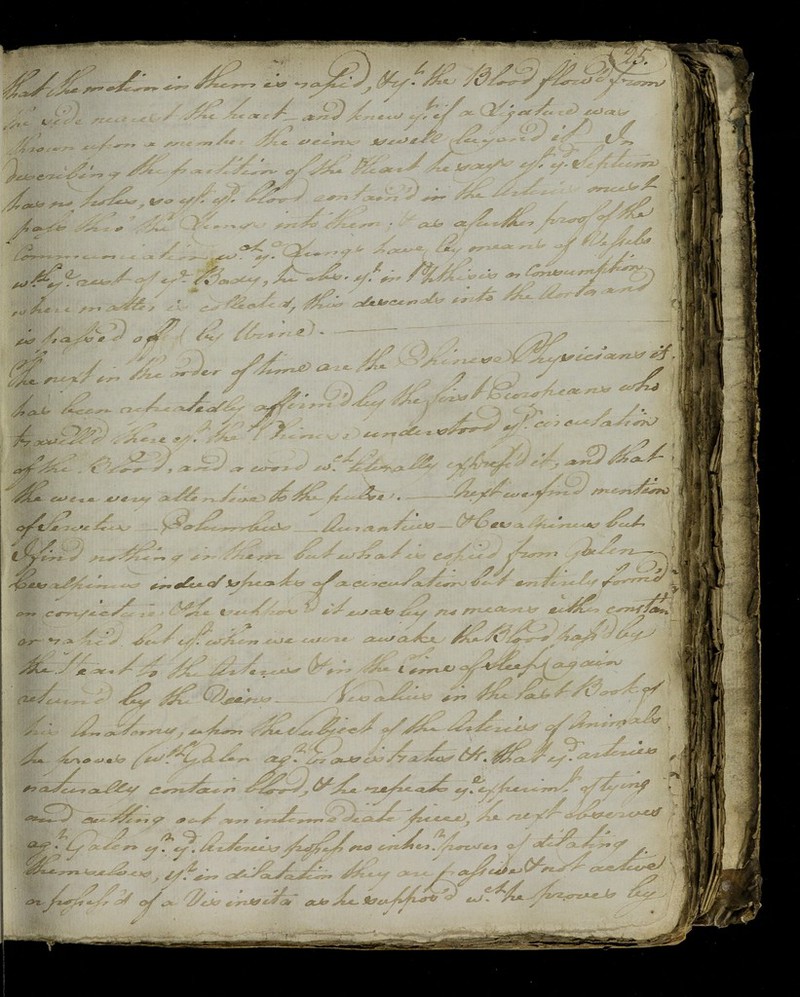 25.
that the motion in them is rapid, & yt. the Blood flow'd from
the side nearest the heart - and knew yt. if a Ligature was
thrown upon a member the veins swell beyond it In
describing the partition of the Heart he says yt. ye. Septum
has no holes, so yt. ye. blood contain'd in the Arteries must
pass thro' the Lungs into them; & as a further proof of the
Communication wch. ye. Lungs have by means of Vessels
wth. ye. rest of ye. Body, he obs. yt. in Phthisis or Consumption
where matter is collected, this descends into the Aorta and
is passed off by Urine. —
The next in the order of time are the Chinese Physicians it
has been repeatedly affirm'd by the first Europeans who
travell'd there yt. the Chinese understood ye. circulation
of the Blood, and a word wch. literally express'd it, and that
the were very attentive to the pulse. — Next we find mention
of Servetus — Columbus — Aurantius — & Cesalpinus but
I find nothing in them but what is copied from Galen —
Cesalpinus indeed speaks of a circulation but entirely form'd
on conjecture & he suppos'd it was by no means either constan
or rapid but yt. when we were awake the Blood pass'd by
the Heart to the Arteries & in the time of sleep again
return'd by the Veins — Vesalius in the last Book of
his Anatomy, upon the subject of the Arteries of Animals
he proves (wth. Galen agt. Erasistratus &c. that ye. arteries
naturally contain blood, & he repeats ye. experimt. of tying
and cutting out an intermediate piece, he next observes
agt. Galen yt. ye. Arteries possess no inhert. power of dilating
themselves, yt. in dilatation they are passive & not active
or possess'd of a Vis insita as he suppos'd wch. he proves by